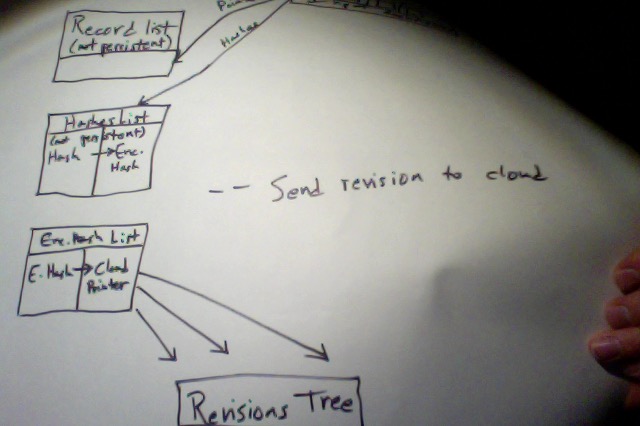 Record list
(not persistent)
Hashes
Hashes List
(not persistent)
Hash → Enc.
Hash
-- Send revision to cloud
Enc. Hash List
E. Hash → Cloud
Pointer
Revisions Tree